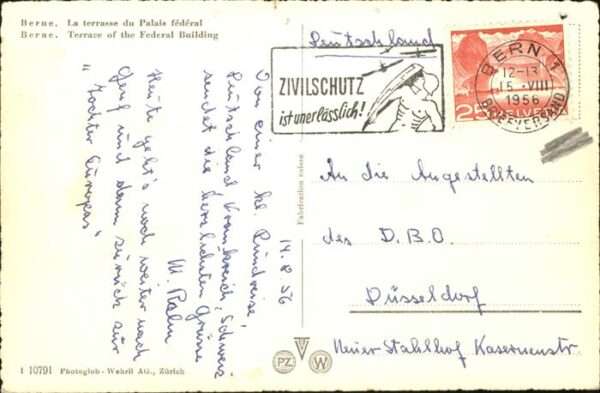 Berne. La terrasse du Palais fédéral
Berne. Terrace of the Federal Building
14.8.56
Von einer kl. Rundreise,
Deutschland Frankreich, Schweiz
sendet die herzlichsten Grüße
M. Palm
Heute geht's noch weiter nach
Genf und dann zurück zur
"Tochter Europas"
Fabrication suisse
Deutschland
ZIVILSCHUTZ
ist unerlässlich!
BERN 1
12-13
15.VIII
1956
BRIEFVERSAND
25
HELVETIA
An die Angestellten
des D.B.O.
Düsseldorf
Neuer Stahlhof Kasernenstr.
PZ
W
1 10791 Photoglob-Wehrli AG., Zürich